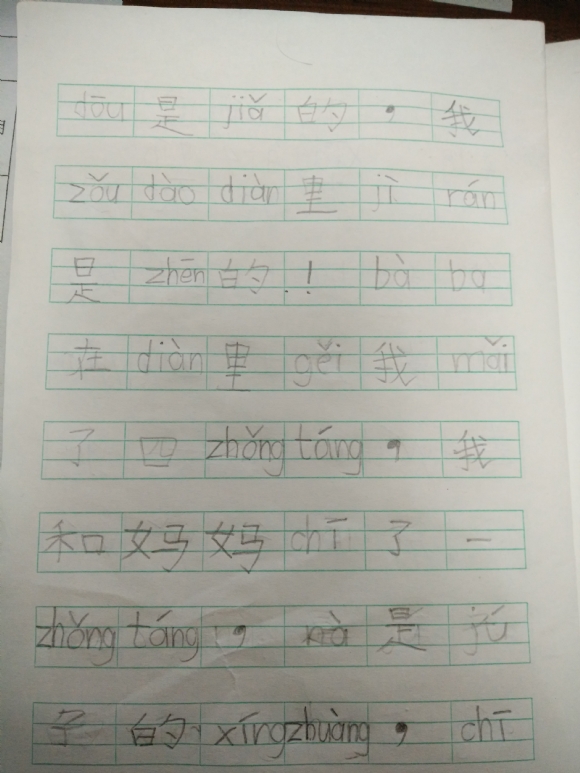 dōu 是 jiǎ 的，我
zǒu dào diàn 里 jì rán
是 zhēn 的！bà ba
在 diàn 里 gěi 我 mǎi
了四 zhǒng táng，我
和妈妈 chī 了一
zhǒng táng，nà 是
子的 xíngzhuàng，chī